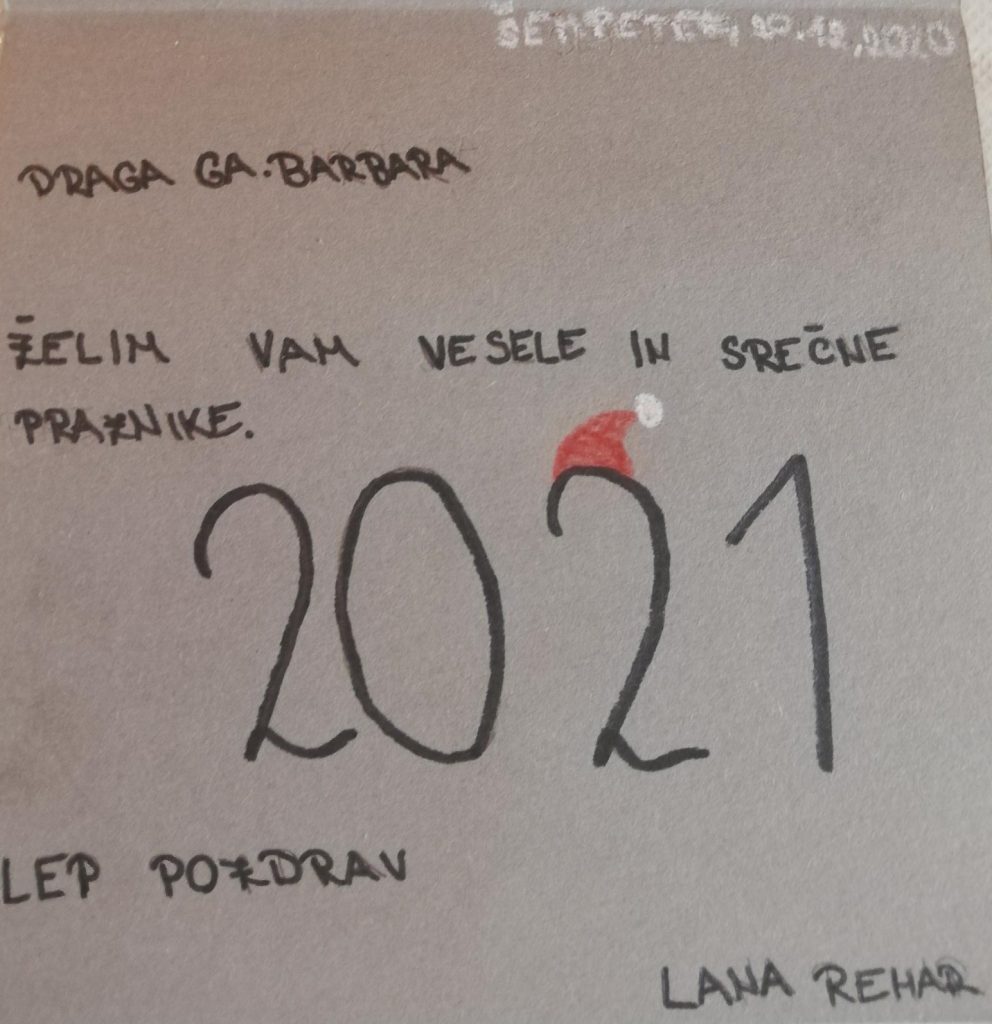 ŠEMPETER, 20.12.2020
DRAGA GA. BARBARA
ŽELIM VAM VESELE IN SREČNE
PRAZNIKE.
2021
LEP POZDRAV
LANA REHAR